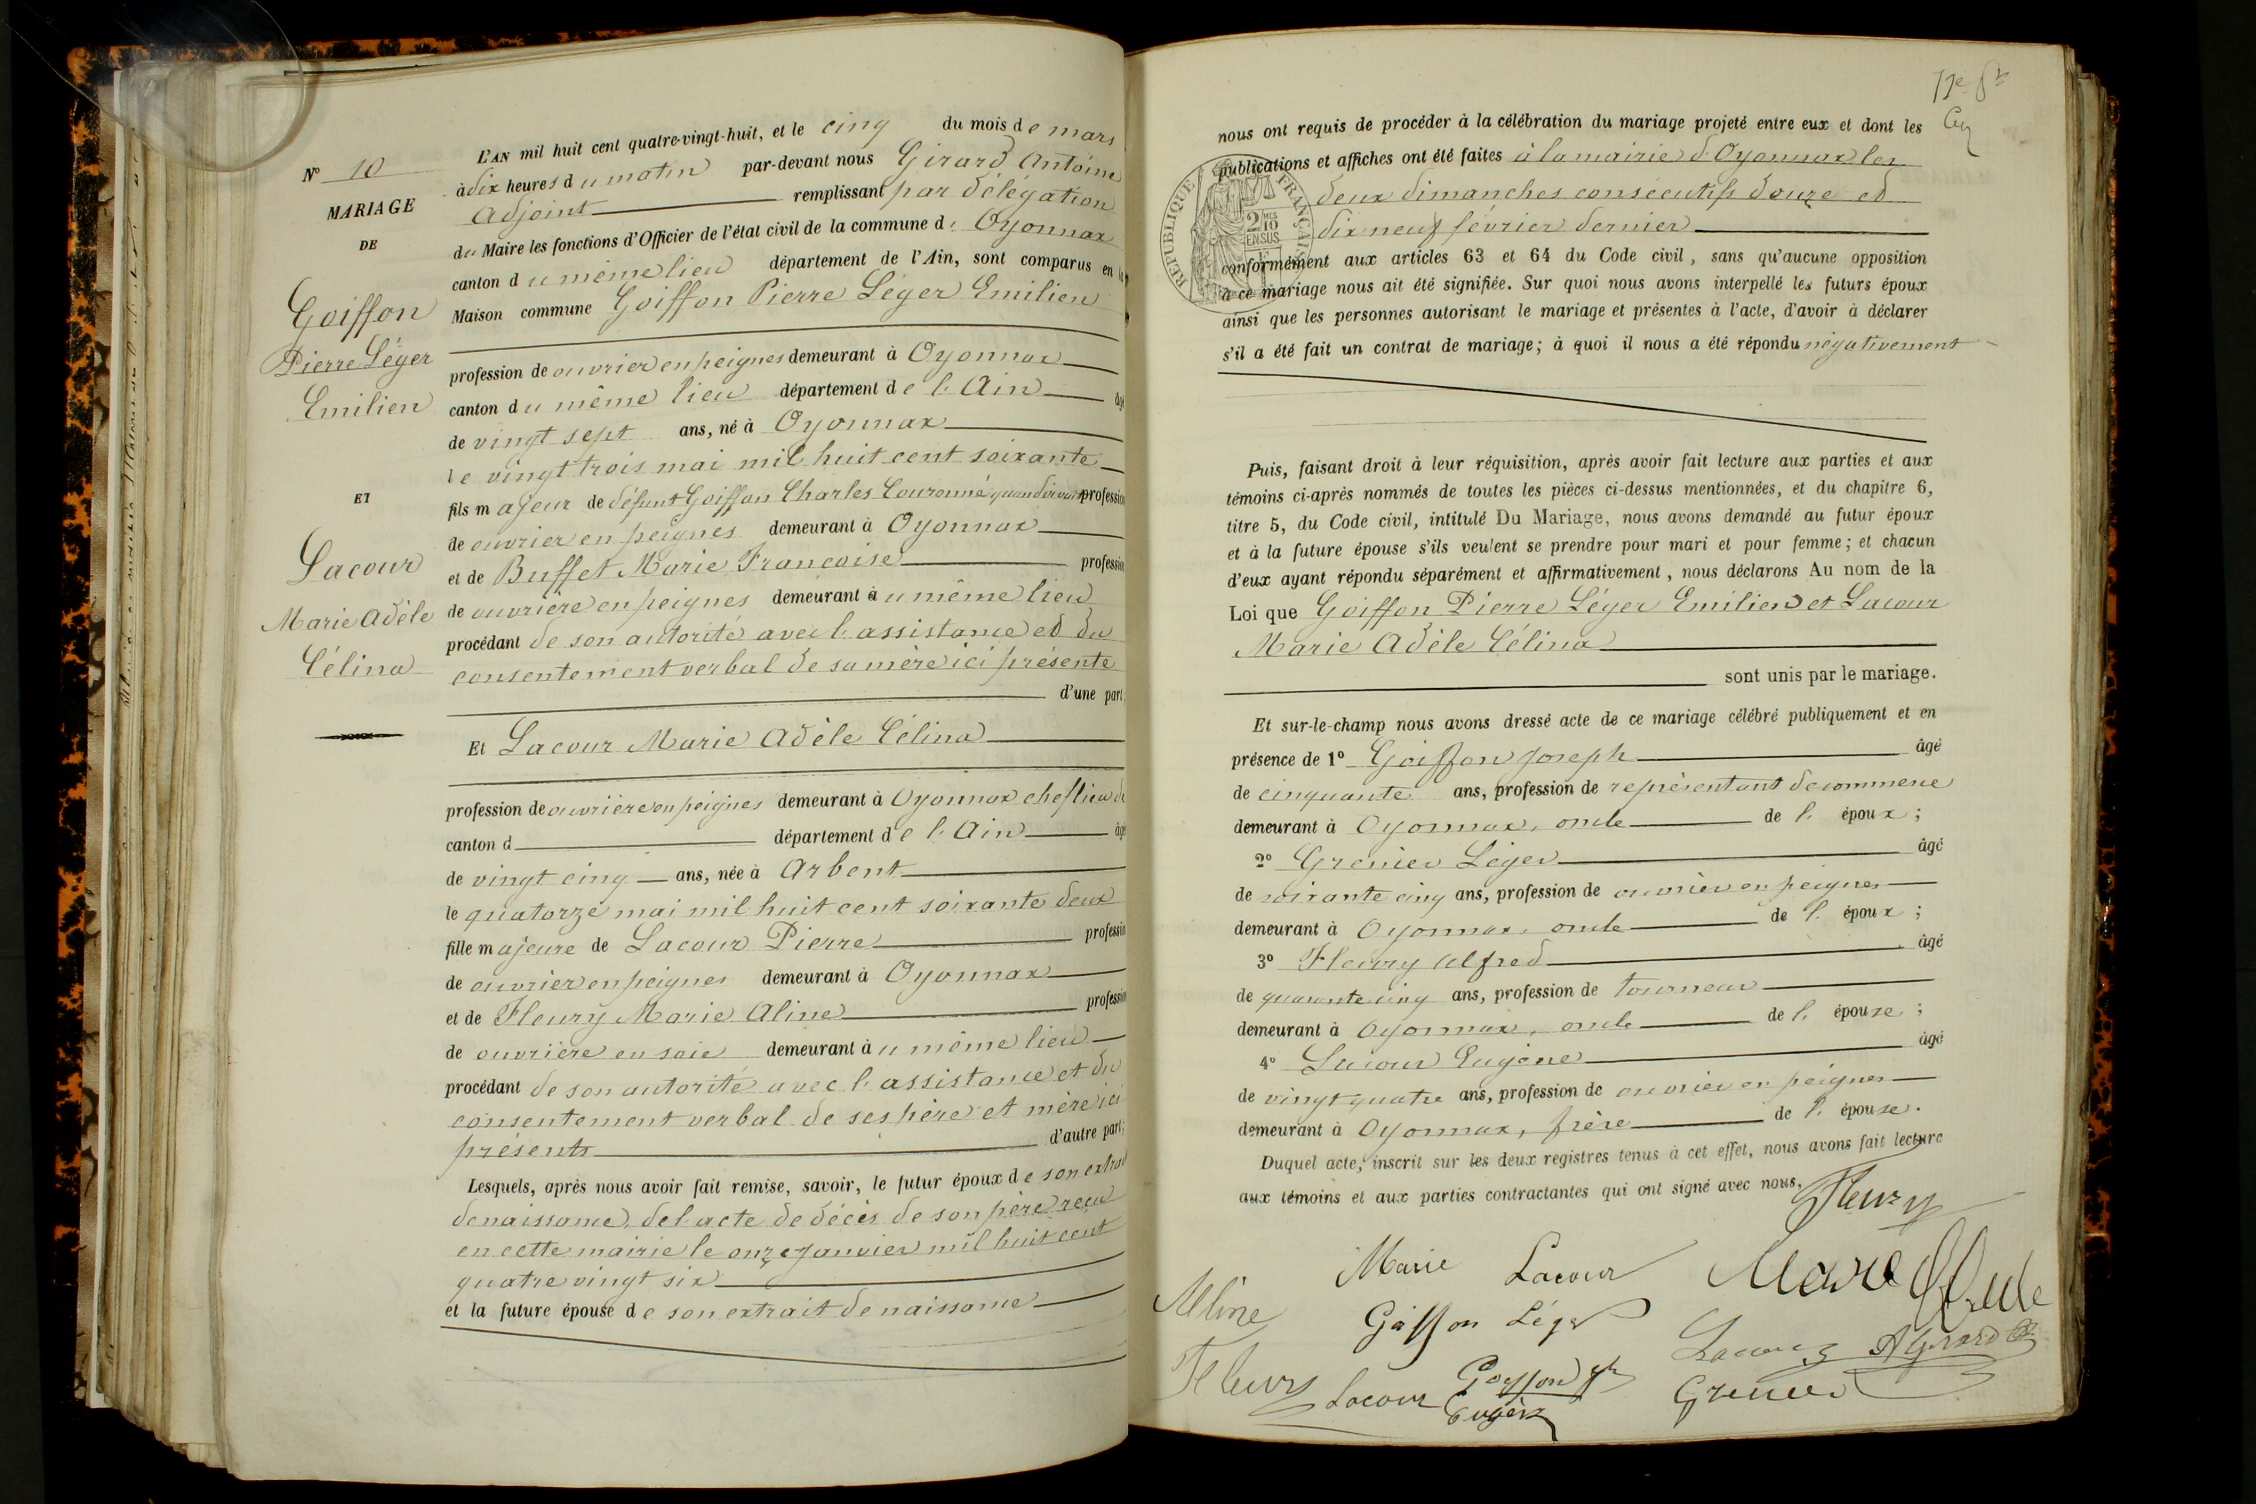 N° 10
MARIAGE
DE
Goiffon
Pierre Léger
Emilien
ET
Lacour
Marie Adèle
Célina
L'AN mil huit cent quatre-vingt-huit, et le cinq du mois de mars
à dix heures du matin par-devant nous Girard Antoine
Adjoint remplissant par délégation
du Maire les fonctions d'Officier de l'état civil de la commune d' Oyonnax
canton du même lieu département de l'Ain, sont comparus en la
Maison commune Goiffon Pierre Léger Emilien
profession de ouvrier en peignes demeurant à Oyonnax
canton du même lieu département de l'Ain âgé
de vingt sept ans, né à Oyonnax
le vingt trois mai mil huit cent soixante
fils majeur de défunt Goiffon Charles Couronné quand vivait profession
de ouvrier en peignes demeurant à Oyonnax
et de Buffet Marie Françoise profession
de ouvrière en peignes demeurant au même lieu
procédant de son autorité avec l'assistance et du
consentement verbal de sa mère ici présente
d'une part
Et Lacour Marie Adèle Célina
profession de ouvrière en peignes demeurant à Oyonnax chef lieu de
canton d département de l'Ain âgée
de vingt cinq ans, née à Arbent
le quatorze mai mil huit cent soixante deux
fille majeure de Lacour Pierre profession
de ouvrier en peignes demeurant à Oyonnax
et de Fleury Marie Aline profession
de ouvrière en soie demeurant au même lieu
procédant de son autorité avec l'assistance et du
consentement verbal de ses père et mère ici
présents d'autre part;
Lesquels, après nous avoir fait remise, savoir, le futur époux de son extrait
de naissance, de l'acte de décès de son père reçu
en cette mairie le onze janvier mil huit cent
quatre vingt six
et la future épouse de son extrait de naissance
nous ont requis de procéder à la célébration du mariage projeté entre eux et dont les
publications et affiches ont été faites à la mairie d'Oyonnax les
deux dimanches consécutifs douze et
dix neuf février dernier
RÉPUBLIQUE FRANÇAISE
2/10 EN SUS
conformément aux articles 63 et 64 du Code civil, sans qu'aucune opposition
à ce mariage nous ait été signifiée. Sur quoi nous avons interpellé les futurs époux
ainsi que les personnes autorisant le mariage et présentes à l'acte, d'avoir à déclarer
s'il a été fait un contrat de mariage; à quoi il nous a été répondu négativement
Puis, faisant droit à leur réquisition, après avoir fait lecture aux parties et aux
témoins ci-après nommés de toutes les pièces ci-dessus mentionnées, et du chapitre 6,
titre 5, du Code civil, intitulé Du Mariage, nous avons demandé au futur époux
et à la future épouse s'ils veulent se prendre pour mari et pour femme; et chacun
d'eux ayant répondu séparément et affirmativement, nous déclarons Au nom de la
Loi que Goiffon Pierre Léger Emilien et Lacour
Marie Adèle Célina
sont unis par le mariage.
Et sur-le-champ nous avons dressé acte de ce mariage célébré publiquement et en
présence de 1° Goiffon Joseph âgé
de cinquante ans, profession de représentant de commerce
demeurant à Oyonnax, oncle de l'époux;
2° Grenier Léger âgé
de soixante cinq ans, profession de ouvrier en peignes
demeurant à Oyonnax, oncle de l'époux;
3° Fleury Alfred âgé
de quarante cinq ans, profession de tourneur
demeurant à Oyonnax, oncle de l'épouse;
4° Lacour Eugène âgé
de vingt quatre ans, profession de ouvrier en peignes
demeurant à Oyonnax, frère de l'épouse.
Duquel acte, inscrit sur les deux registres tenus à cet effet, nous avons fait lecture
aux témoins et aux parties contractantes qui ont signé avec nous,
Fleury
Marie Lacour
Aline
Goiffon Léger
Lacour AGirard
Fleury Lacour Eugène
Goiffon
Grenier